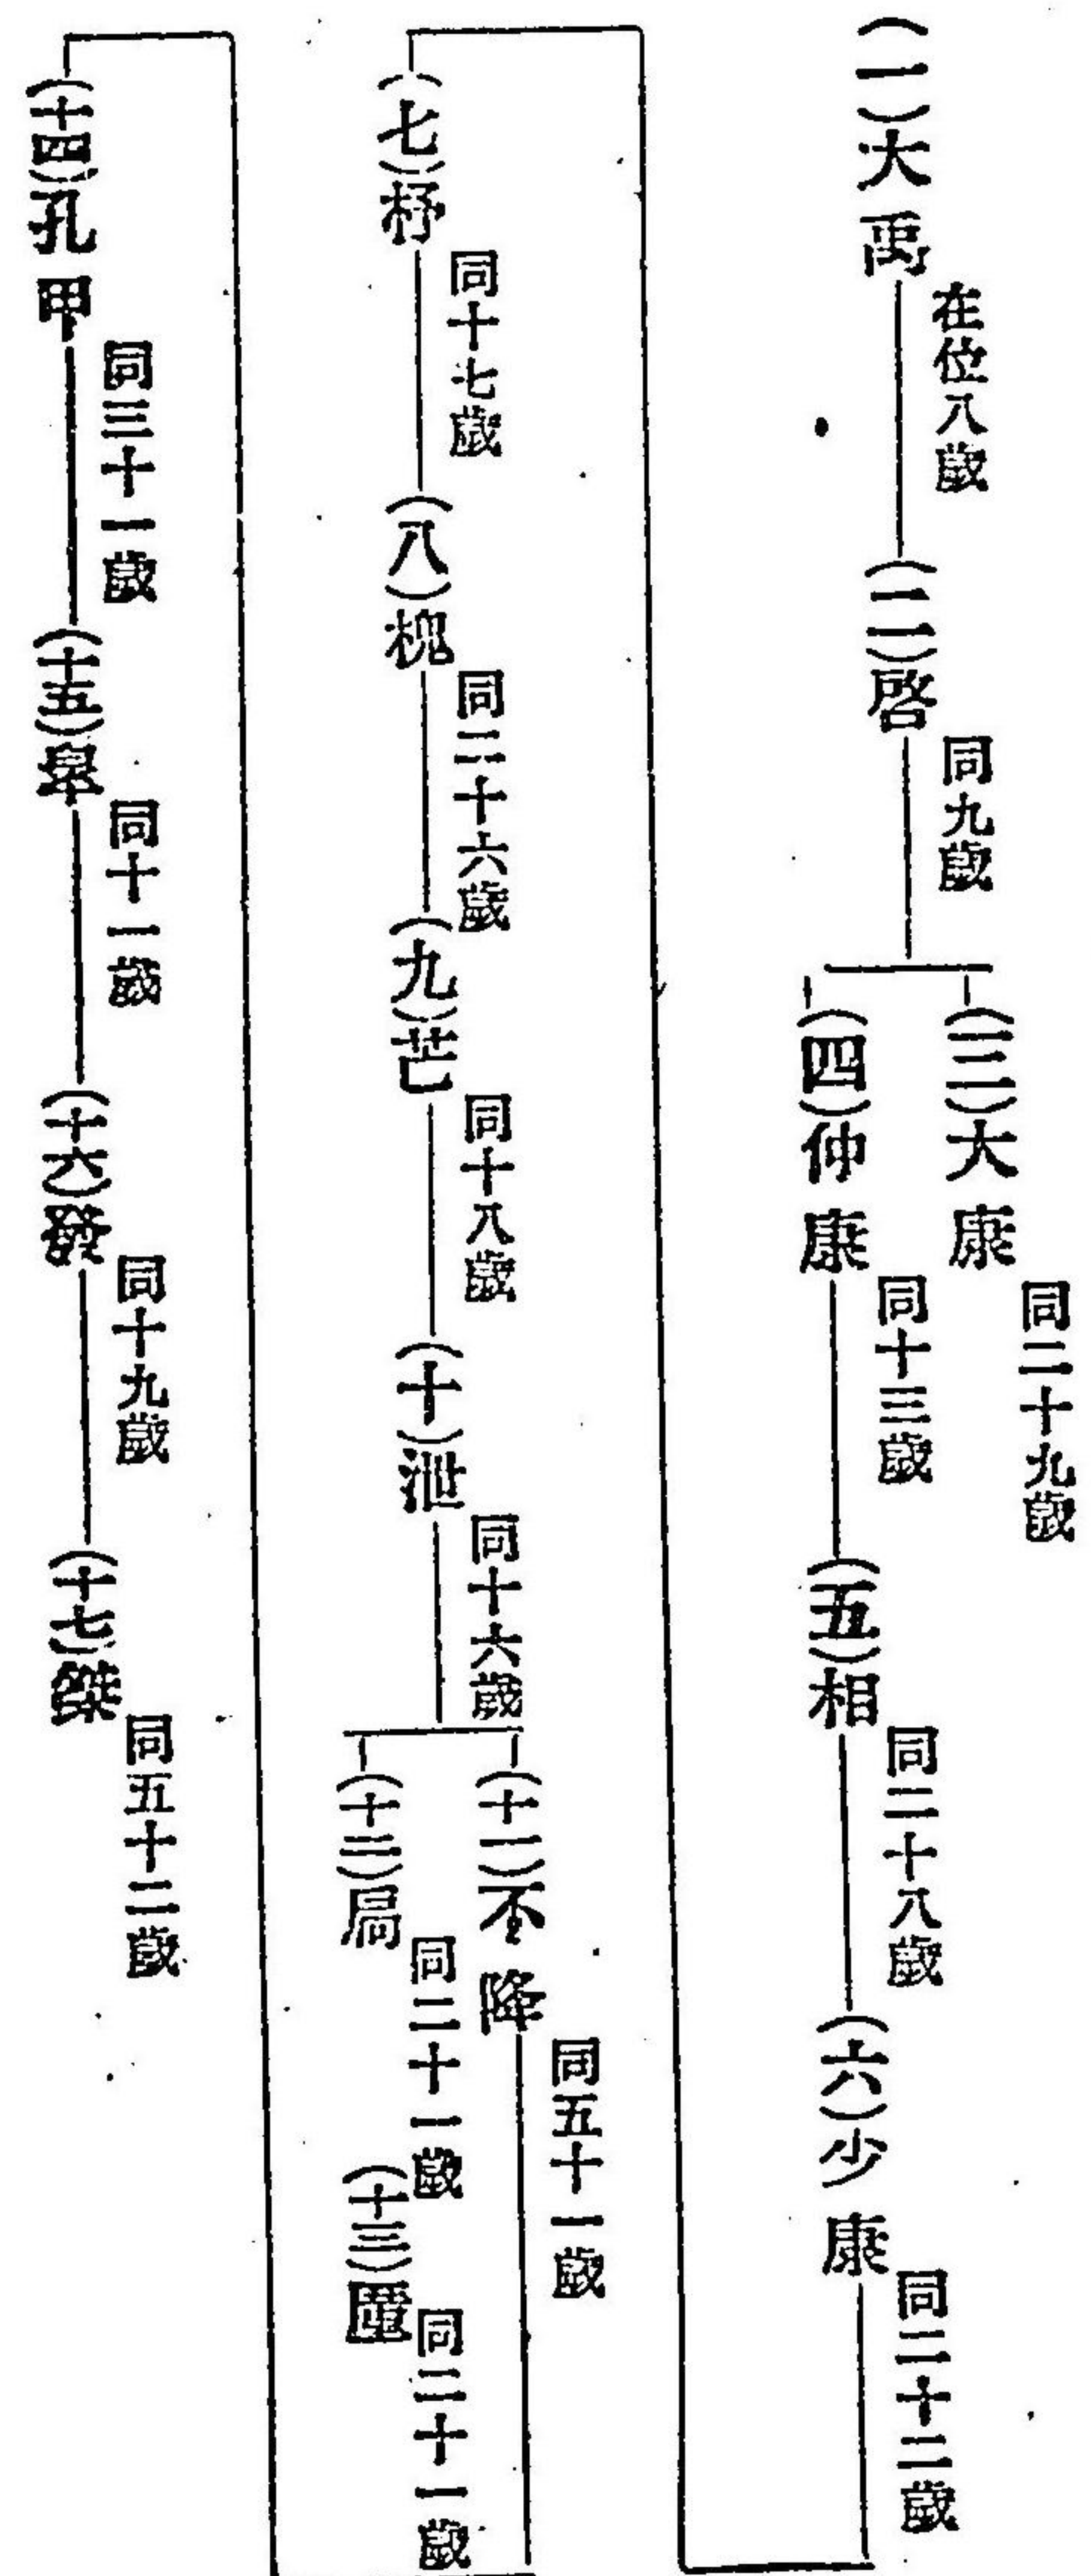 (一)大禹 在位八歲
(二)啓 同九歲
(三)大康 同二十九歲
(四)仲康 同十三歲
(五)相 同二十八歲
(六)少康 同二十二歲
(七)杼 同十七歲
(八)槐 同二十六歲
(九)芒 同十八歲
(十)泄 同十六歲
(十一)不降 同五十一歲
(十二)扃 同二十一歲
(十三)同二十一歲
(十四)孔甲 同三十一歲
(十五)皐 同十一歲
(十六)發 同十九歲
(十七)桀 同五十二歲